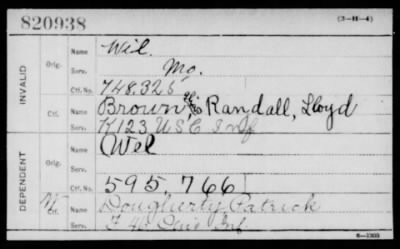 820938
(3-H-4)
INVALID
Orig.
Name Wil.
Serv. Mo.
Ctf. No. 748,325
Ctf.
Name Brown Randall, Lloyd
Serv. K 123 U S C Inf
DEPENDENT
Orig.
Name Wel
Serv.
Ctf. No. 595,766
Ctf.
Name Dougherty Patrick
Serv. F 46 Inf.